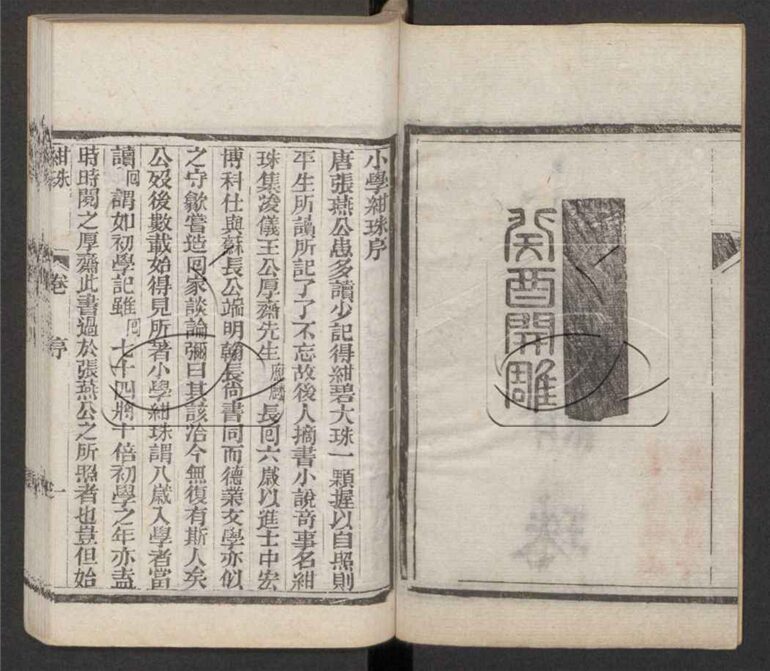 癸酉開雕
小學紺珠序
唐張燕公患多讀少記得紺碧大珠一顆握以自照則
平生所讀所記了了不忘故後人摘書小說奇事名紺
珠集浚儀王公厚齋先生應麟長回六歲以進士中宏
博科仕與蘇長公端明翰長尚書同而德業文學亦似
之守歙嘗造回家談論彌日其該洽今無復有斯人矣
公歿後數載始得見所著小學紺珠謂八歲入學者當
讀回謂如初學記雖回七十四將十倍初學之年亦盍
時時閱之厚齋此書過於張燕公之所照者也豈但始
紺珠 卷 序 一